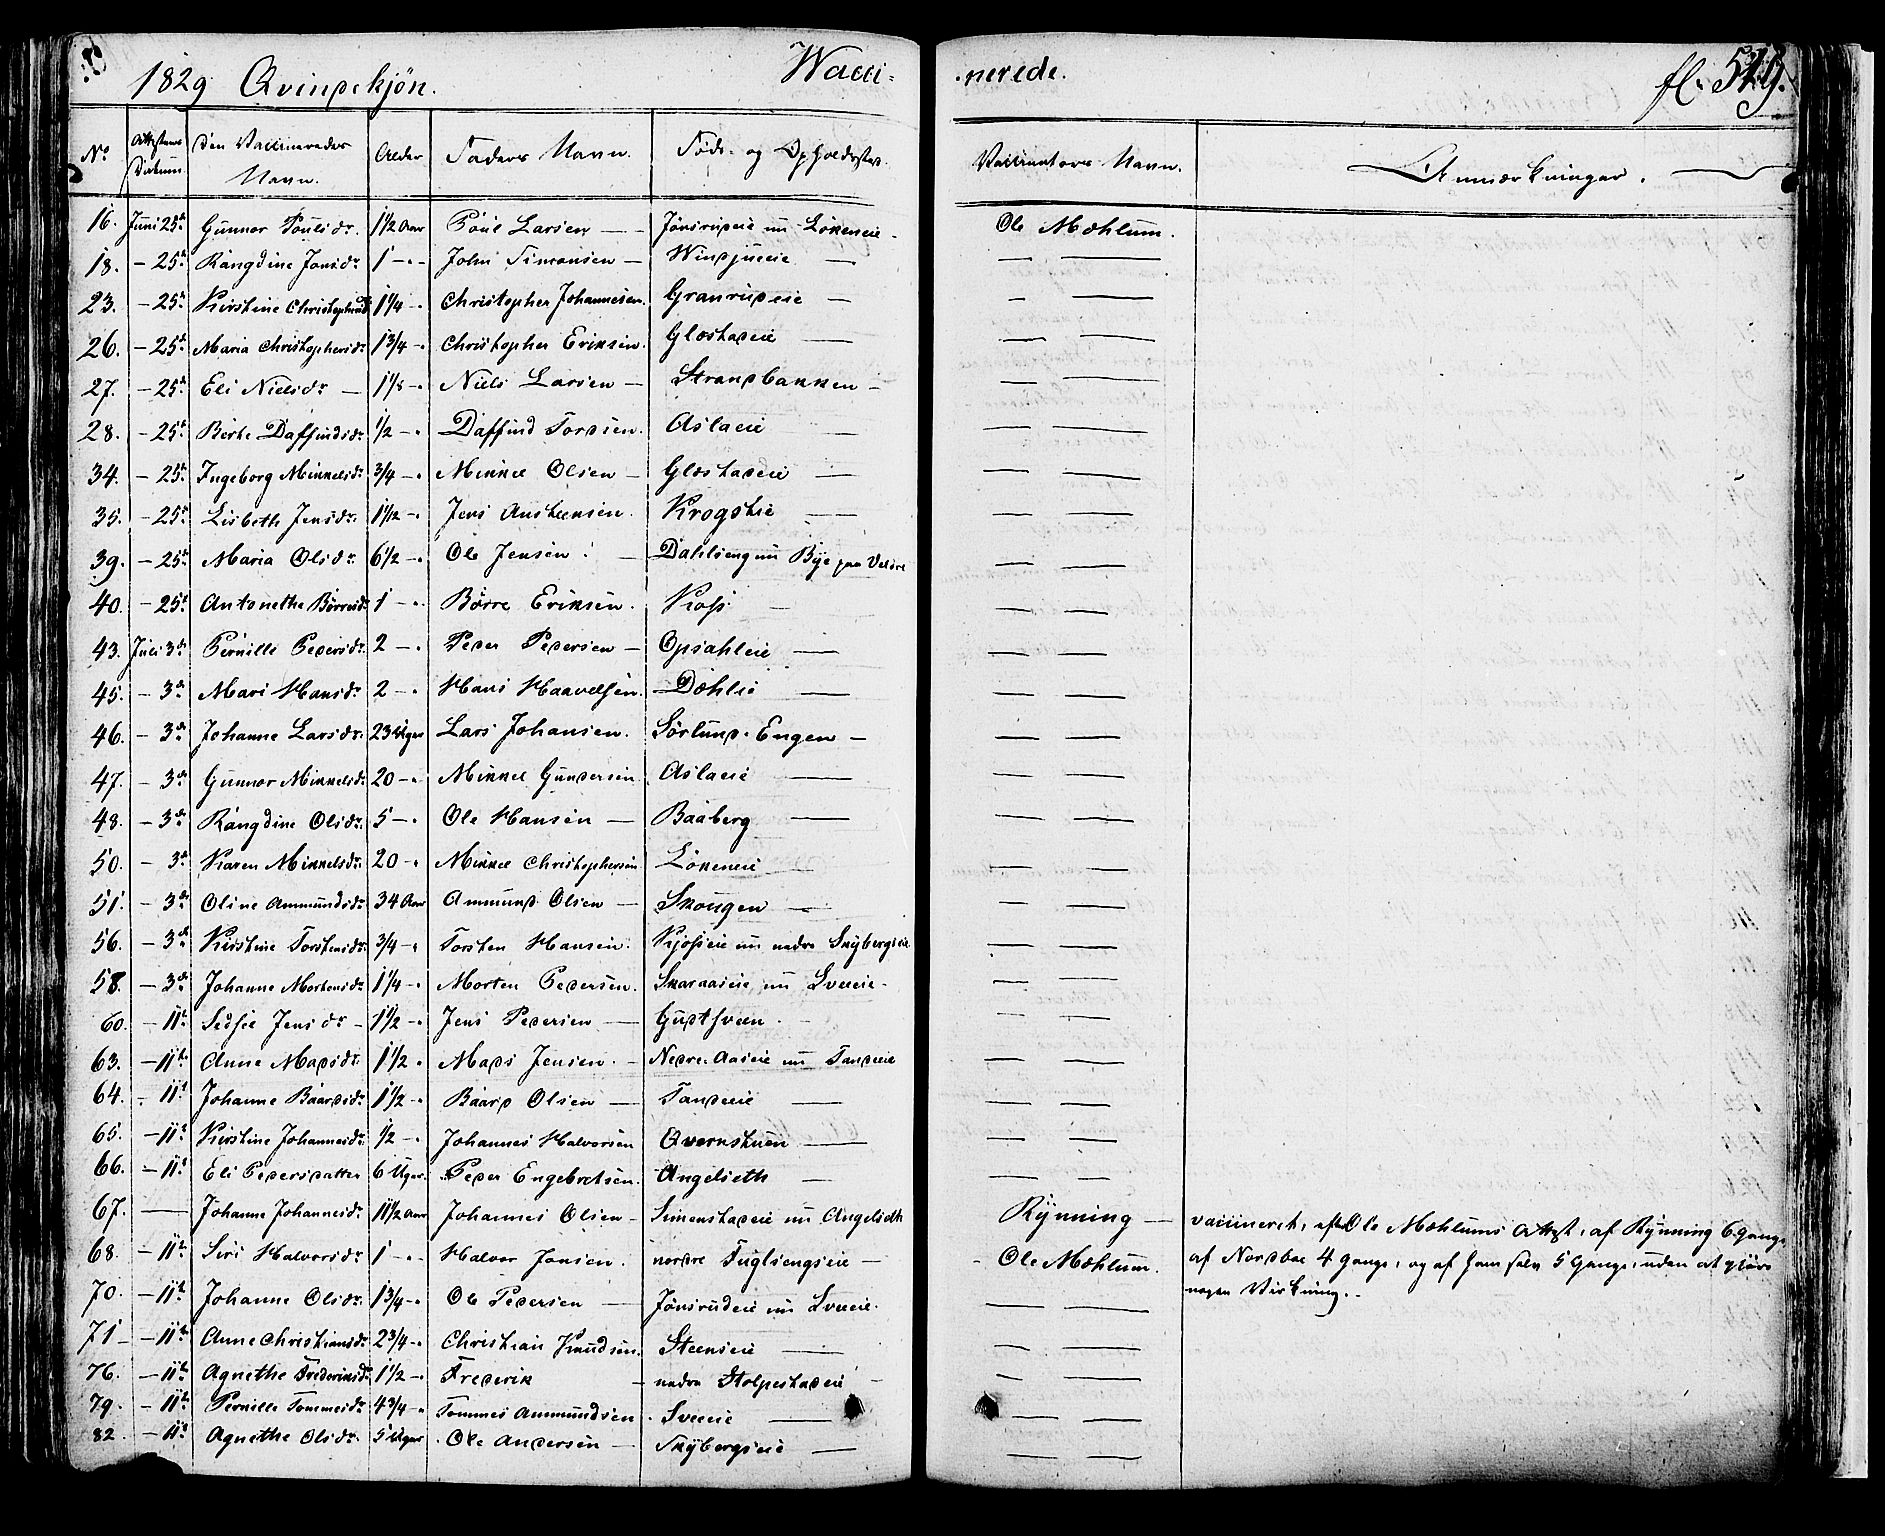 1829 Qvindekjön. Wacci- nerede. fl. 529.
No Attestens Datum Den Vaccineredes Navn. Alder Faders Navn. Føde- og Opholdssted. Vaccinateurs Navn. Anmærkninger.
16. Juni 25de Gunnor Poulsdr. 1 1/2 Aar Poul Larsen — Jønsrudeie nu Lökeneie - Ole Mæhlum.
18. — 25de Rangdine Jonsdr 1 — John Simensen — Windjueeie — — —
23. — 25de Kirstine Christophersdr 1 1/4 — Christopher Johannesen. Granrudeie — — —
26. — 25de Maria Christophersdr. 1 3/4 — Christopher Eriksen. Glæstadeie — — —
27. — 25de Eli Nielsdr — 1 1/8 — Niels Larsen — Strandbakken — — —
28. — 25de Berthe Daffindsdr. 1/2 — Daffind Tordsen. Aslaeie — — —
34. — 25de Ingeborg Mikkelsdr. 3/4 — Mikkel Olsen — Glæstadeie — — —
35. — 25de Lisbeth Jensdr. 1 1/2 — Jens Austeensen. Krogstie — — —
39. — 25de Maria Olsdr. 6 1/2 — Ole Jensen. — Dahlseng nu Bye paa Veldre — —
40. — 25de Antonethe Börresdr 1 — Börre Eriksen. Koss — — —
43. Juli 3de Pernille Pedersdr. 2 — Peder Pedersen — Opsahleie — — —
45. — 3de Mari Hansdr. 2 — Hans Haavelsen. Dæhlie — — —
46. — 3de Johanne Larsdr. 23 Uger Lars Johansen. Sörlund-Engen — — —
47. — 3de Gunnor Mikkelsdr. 20 — Mikkel Gundersen Aslaeie — — —
48. — 3de Rangdine Olsdr. 5 — Ole Hansen — Baaberg — — —
50. — 3de Karen Mikkelsdr. 20 — Mikkel Christophersen Lökeneie — —
51. — 3de Oline Ammundsdr. 34 Aar Ammund Olsen — Skougen — — —
56. — 3de Kirstine Torstensdr. 3/4 — Torsten Hansen. Kjoseie nu nedre Skybergseie — —
58. — 3de Johanne Mortensdr. 1 1/4 — Morten Pedersen. Skaraaseie nu Sveeie. — —
60. — 11te Sedsie Jensdr — 1 1/2 — Jens Pedersen — Gustsveen. — —
63. — 11te Anne Madsdr. 1 1/2 — Mads Jensen. — Nedre-Aaseie nu Tandeeie — —
64. — 11te Johanne Baardsdr. 1 1/2 — Baard Olsen — Tandeeie — — —
65. — 11te Kirstine Johannesdr. 1/2 — Johannes Halvorsen Qvernstuen — — —
66. — 11te Eli Pedersdatter 6 Uger. Peder Engebretsen. Angelseth — — —
67. — Johanne Johannesdr. 11 1/2 Aar Johannes Olsen — Simenstadeie nu Angelseth Rynning — vaccineret, efter Ole Mæhlums Attest, af Rynning 6 Gange
68. — 11te Siri Halvorsdr. 1 — Halvor Jonsen. nordre Fuglsengseie — Ole Mæhlum. af Nordbae 4 Gange, og af ham selv 5 Gange, uden at gjöre
nogen Virkning.
70. — 11te Johanne Olsdr. 1 3/4 — Ole Pedersen — Jønsrudeie nu Sveeie. — —
71 — 11te Anne Christiansdr. 2 3/4 — Christian Knudsen. Steenseie — — —
76. — 11te Agnethe Frederiksdr. 1 1/2 — Frederik — nedre Stolpestadeie — — —
79. — 11te Pernille Tommesdr. 4 3/4 — Tommes Ammundsen. Sveeie — — —
82 — 11te Agnethe Olsdr. 5 Uger. Ole Andersen — Skybergseie — — —